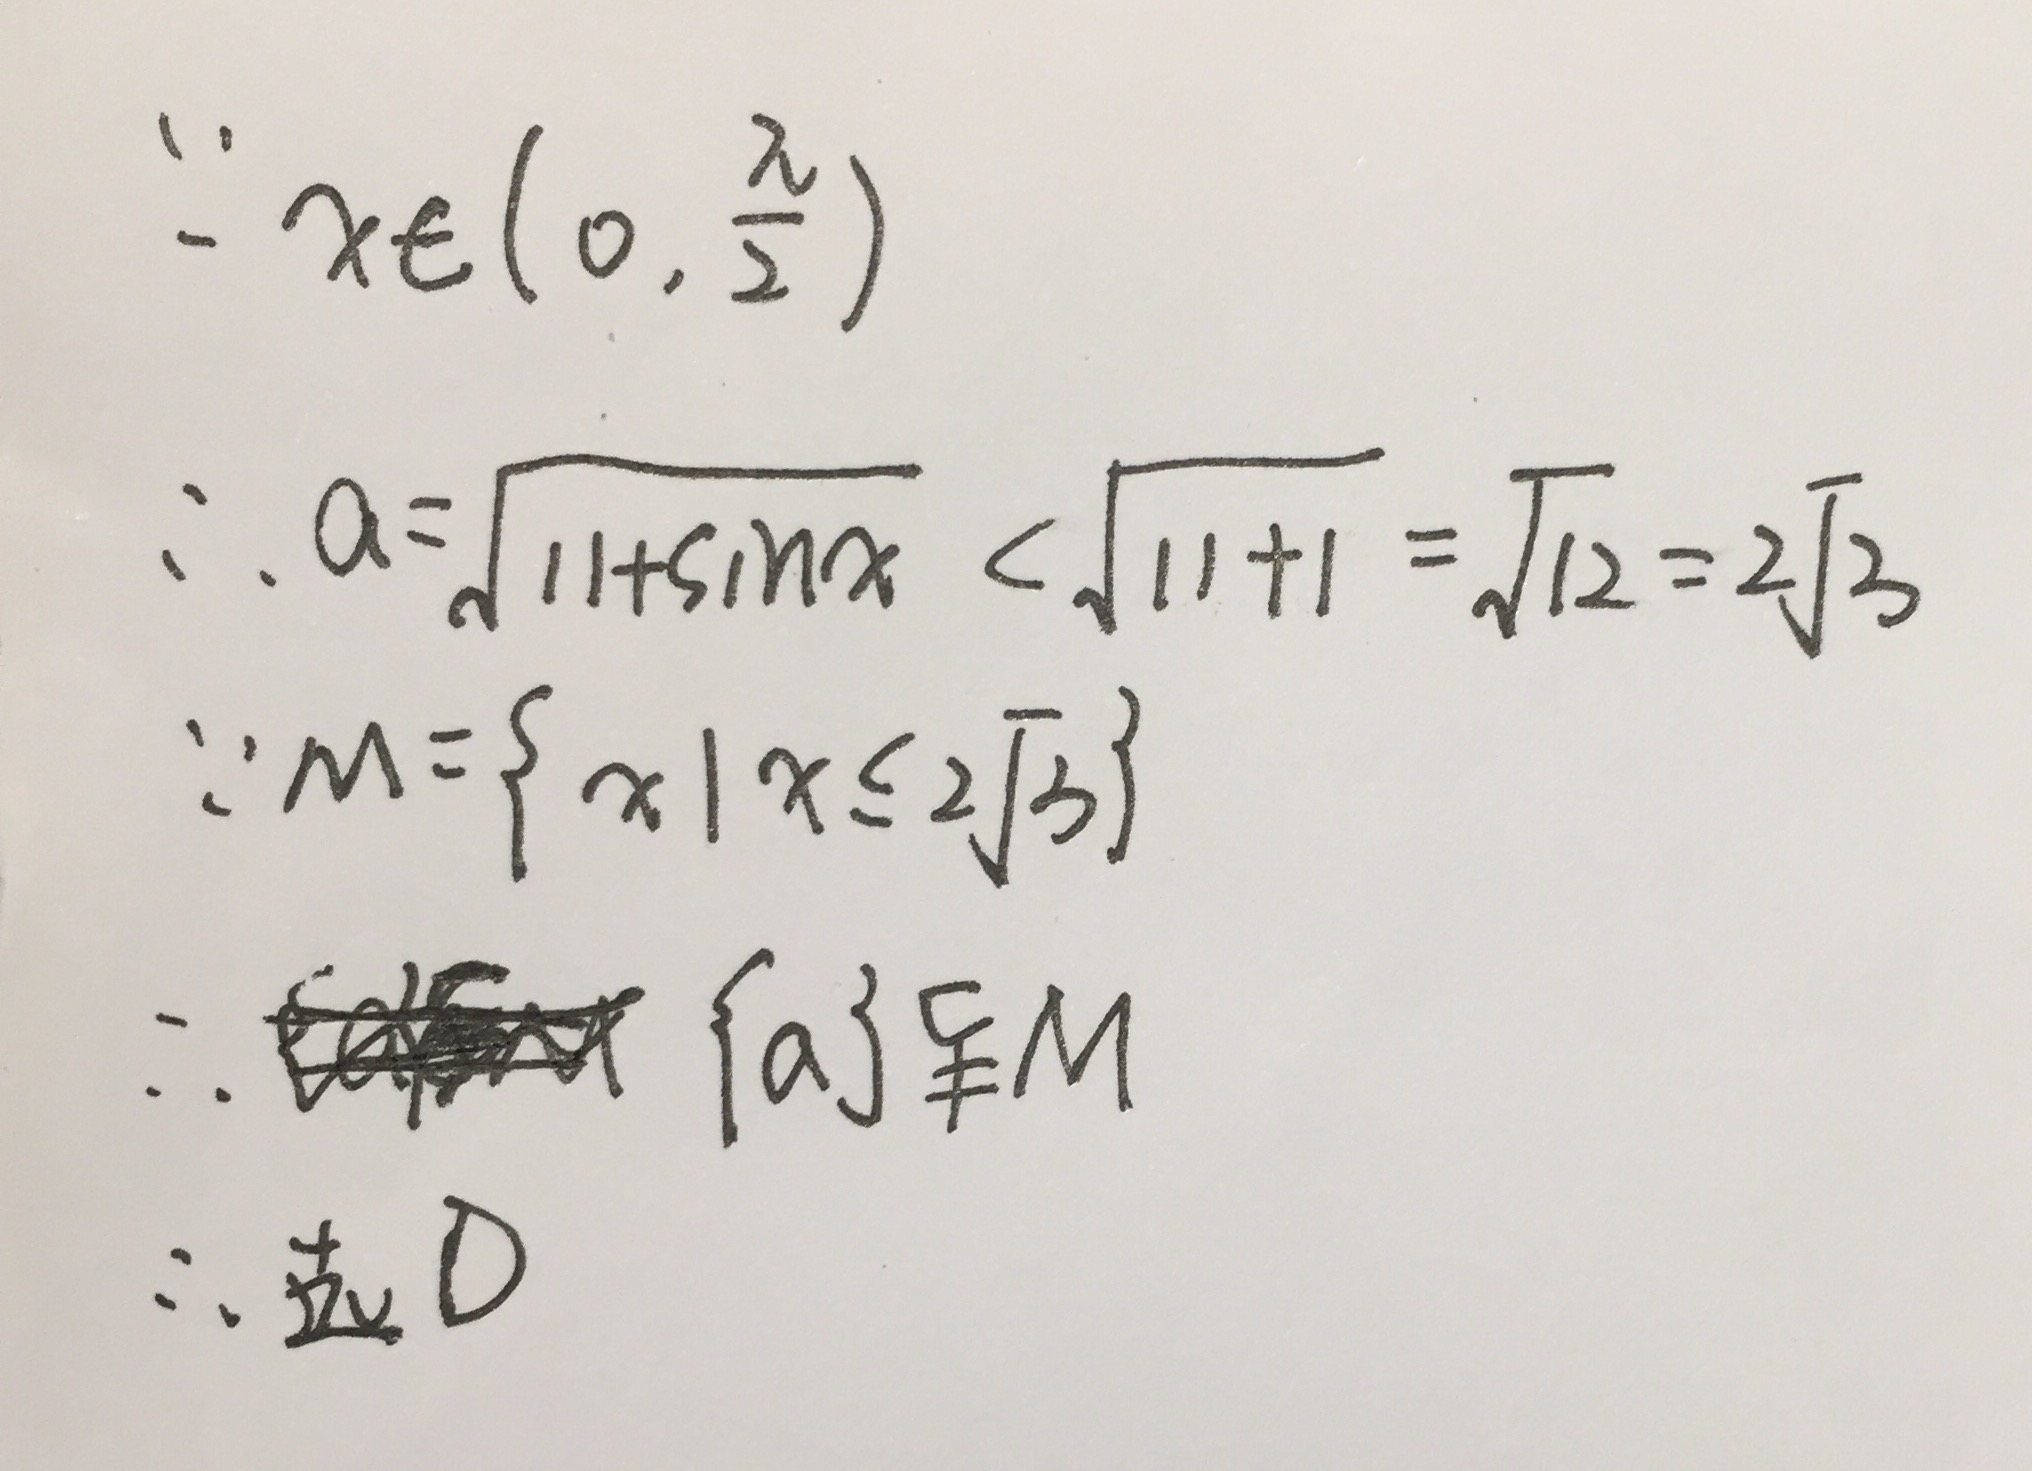 ∵ x∈(0, π/2)
∴ a=√(11+sinx) <√(11+1) =√12=2√3
∵ M={x|x≤2√3}
∴ {a}⫋M
∴ 选D